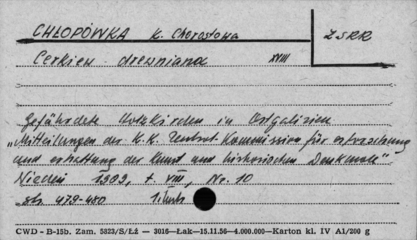 CHŁOPÓWKA k. Chorostkowa
ZSRR
Cerkiew drewniana XVIII
Gefährdete Holzkirchen in Ostgalizien
„Mitteilungen der K.K. Zentral Kommission für erforschung
und erhaltung der kunst und historischen Denkmale"
Wiedeń 1909, t. VIII, Nr. 10
str. 479-480
CWD – B-15b. Zam. 5823/S/Łź — 3016—Łak—15.11.56—4.000.000—Karton kl. IV A1/200 g